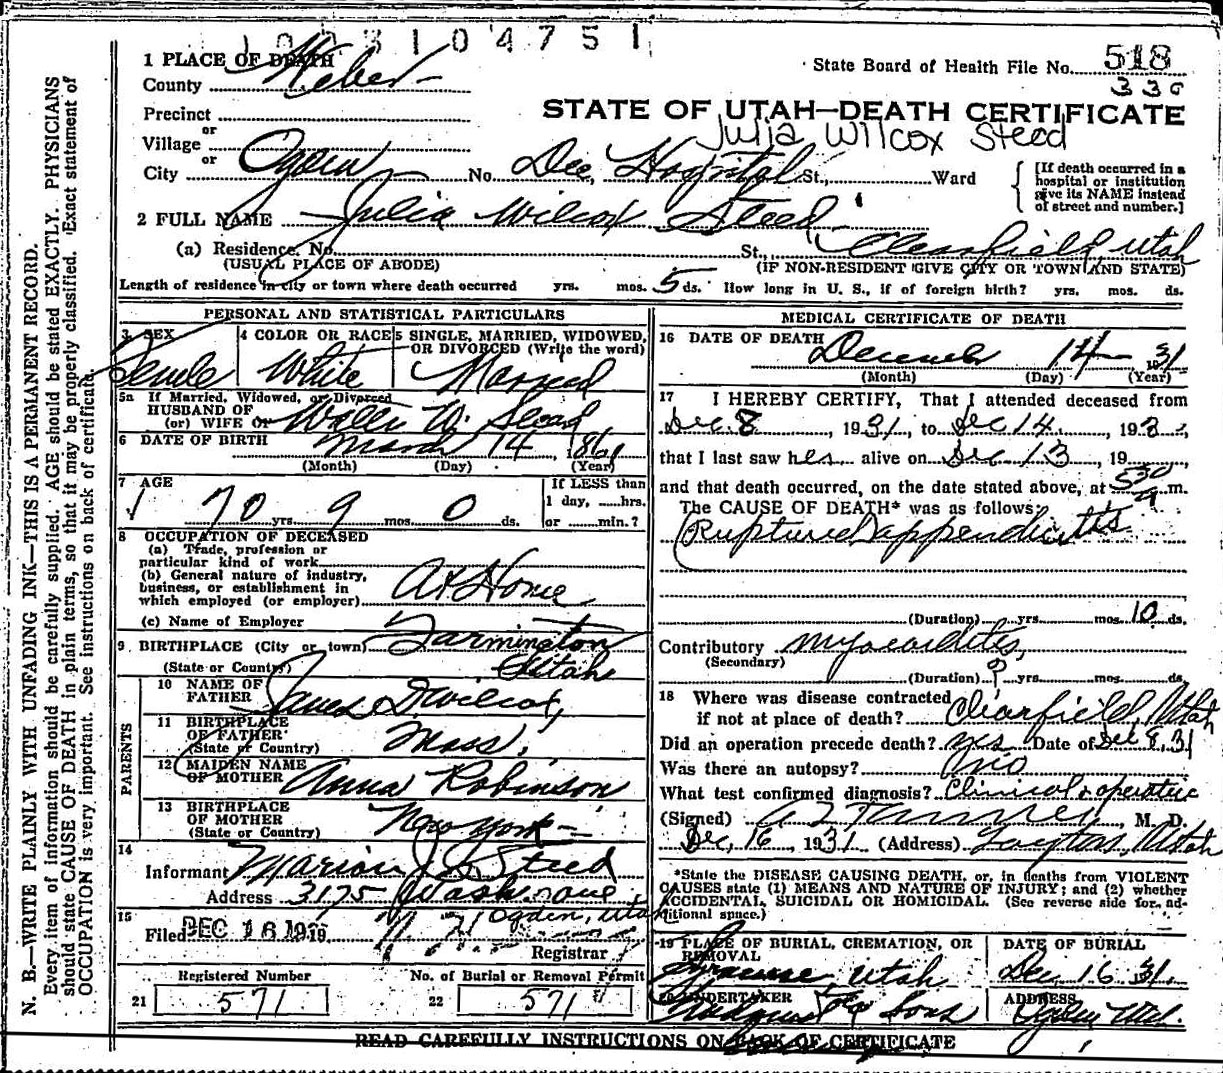 1 0 0 3 1 0 4 7 5 1
1 PLACE OF DEATH
County Weber
State Board of Health File No. 518
330
STATE OF UTAH—DEATH CERTIFICATE
Julia Wilcox Steed
Precinct
or
Village
or
City Ogden No. Dee Hospital St., Ward
[If death occurred in a hospital or institution give its NAME instead of street and number.]
2 FULL NAME Julia Wilcox Steed
(a) Residence. No. St., Clearfield, Utah
(USUAL PLACE OF ABODE) (IF NON-RESIDENT GIVE CITY OR TOWN AND STATE)
Length of residence in city or town where death occurred yrs. mos. 5 ds. How long in U. S., if of foreign birth? yrs. mos. ds.
PERSONAL AND STATISTICAL PARTICULARS
3 SEX
Female
4 COLOR OR RACE
White
5 SINGLE, MARRIED, WIDOWED, OR DIVORCED (Write the word)
Married
5a If Married, Widowed, or Divorced
HUSBAND OF
(or) WIFE OF Walter W. Steed
6 DATE OF BIRTH March 14, 1861
(Month) (Day) (Year)
7 AGE
70 yrs. 9 mos. 0 ds.
If LESS than
1 day, hrs.
or min.?
8 OCCUPATION OF DECEASED
(a) Trade, profession or
particular kind of work
(b) General nature of industry,
business, or establishment in
which employed (or employer) At Home
(c) Name of Employer
9 BIRTHPLACE (City or town) Farmington
(State or County) Utah
PARENTS
10 NAME OF FATHER James D Wilcox,
11 BIRTHPLACE OF FATHER (State or Country) Mass.
12 MAIDEN NAME OF MOTHER Anna Robinson
13 BIRTHPLACE OF MOTHER (State or Country) New York
14
Informant Marion J. Steed
Address 3175 Wash. ave
Ogden, Utah
15
Filed DEC 16 19
Registrar
Registered Number
21 571
No. of Burial or Removal Permit
22 571
MEDICAL CERTIFICATE OF DEATH
16 DATE OF DEATH
December 14 1931
(Month) (Day) (Year)
17 I HEREBY CERTIFY, That I attended deceased from
Dec. 8, 1931, to Dec 14, 193
that I last saw her alive on Dec 13, 19
and that death occurred, on the date stated above, at 5 30 a m.
The CAUSE OF DEATH* was as follows:
Ruptured appendicitis
(Duration) yrs. mos. 10 ds.
Contributory myocarditis,
(Secondary)
(Duration) ? yrs. mos. ds.
18 Where was disease contracted
if not at place of death? Clearfield, Utah
Did an operation precede death? yes Date of Dec 8, 31
Was there an autopsy? no
What test confirmed diagnosis? Clinical & operative
(Signed) M. D.
Dec, 16, 1931 (Address) Layton, Utah
*State the DISEASE CAUSING DEATH, or, in deaths from VIOLENT
CAUSES state (1) MEANS AND NATURE OF INJURY; and (2) whether
ACCIDENTAL, SUICIDAL OR HOMICIDAL. (See reverse side for additional space.)
19 PLACE OF BURIAL, CREMATION, OR REMOVAL
Syracuse, Utah
DATE OF BURIAL
Dec, 16 31.
20 UNDERTAKER
& Sons
ADDRESS
Ogden Utah.
READ CAREFULLY INSTRUCTIONS ON BACK OF CERTIFICATE
N. B.—WRITE PLAINLY WITH UNFADING INK—THIS IS A PERMANENT RECORD.
Every item of information should be carefully supplied. AGE should be stated EXACTLY. PHYSICIANS
should state CAUSE OF DEATH in plain terms, so that it may be properly classified. Exact statement of
OCCUPATION is very important. See instructions on back of certificate.